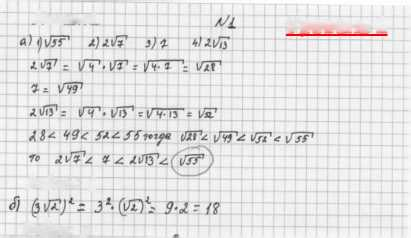 №1
а) 1) √55 2) 2√7 3) 7 4) 2√13
2√7 = √4 · √7 = √4·7 = √28
7 = √49
2√13 = √4 · √13 = √4·13 = √52
28 < 49 < 52 < 55 тогда √28 < √49 < √52 < √55
то 2√7 < 7 < 2√13 < √55
б) (3√2)² = 3² · (√2)² = 9·2 = 18